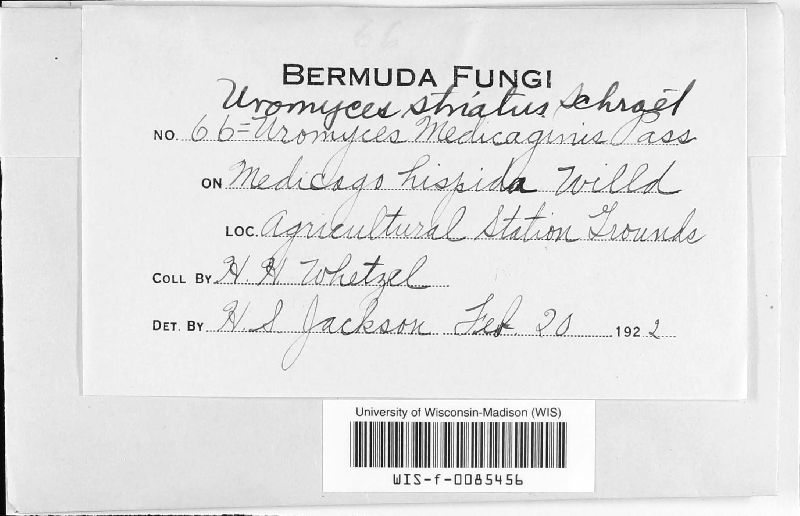 BERMUDA FUNGI
Uromyces striatus Schroet
NO. 66=Uromyces Medicaginis Pass
ON Medicago hispida Willd
LOC. Agricultural Station Grounds
COLL BY H H Whetzel
DET. BY H. S Jackson Feb. 20 1922
University of Wisconsin-Madison (WIS)
WIS-f-0085456